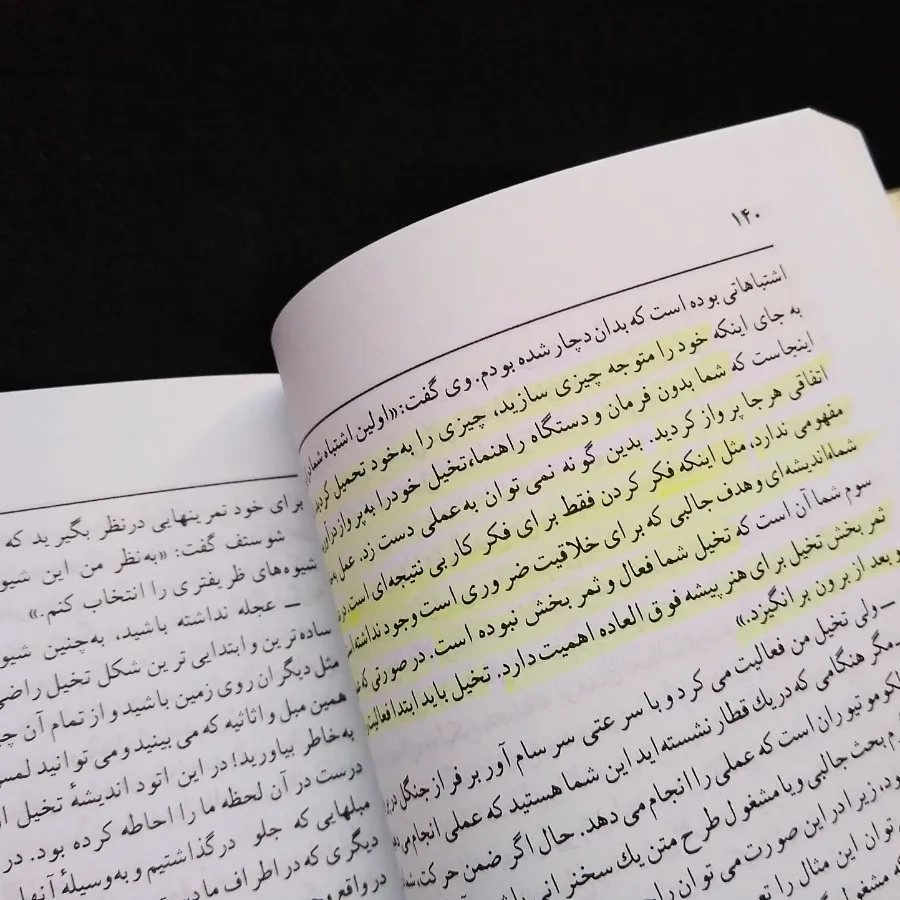 ۱۴۰
اشتباهاتی بوده است که بدان دچار شده بودم. وی گفت: «اولین اشتباه شما
به جای اینکه خود را متوجه چیزی سازید، چیزی را به خود تحمیل کردید
اینجاست که شما بدون فرمان و دستگاه راهنما، تخیل خود را به پرواز درآو
اتفاقی هرجا پرواز کردید. بدین گونه نمی توان به عملی دست زد. عمل
مفهومی ندارد، مثل اینکه فکر کردن فقط برای فکر کار بی نتیجه‌ای است.
شما اندیشه‌ای و هدف جالبی که برای خلاقیت ضروری است وجود نداشته
سوم شما آن است که تخیل شما فعال و ثمر بخش نبوده است. در صورتی که
ثمر بخش تخیل برای هنرپیشه فوق العاده اهمیت دارد. تخیل باید ابتدا فعالیت
و بعد از برون برانگیزد.»
– ولی تخیل من فعالیت می کرد و با سرعتی سرسام آور بر فراز جنگل
– مگر هنگامی که در یك قطار نشسته‌اید این شما هستید که عملی انجام
لکوموتیوران است که عملی را انجام می دهد. حال اگر ضمن حرکت،
بحث جالبی و یا مشغول طرح متن یك سخنرانی
زیرا در این صورت می توان
توان این مثال را
مشغول
برای خود تمرینهایی درنظر بگیرید که
شوستف گفت: «به‌نظر من این شیو
شیوه‌های ظریفتری را انتخاب کنم.»
– عجله نداشته باشید، به‌چنین شیو
ساده‌ترین و ابتدایی ترین شکل تخیل راضی
مثل دیگران روی زمین باشید و از تمام آن چی
همین مبل و اثاثیه که می بینید و می توانید لمس
به‌خاطر بیاورید! در این اتود اندیشهٔ تخیل
درست در آن لحظه ما را احاطه کرده بود. در
مبلهایی که جلو در گذاشتیم و به‌وسیلهٔ آنها
دیگری که در اطراف ما
در واقع و